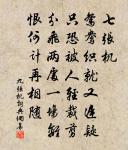 七張機
鴛鴦織就又遲疑
只恐被人輕裁剪
分飛兩處一場離
恨何計再相隨
九張機